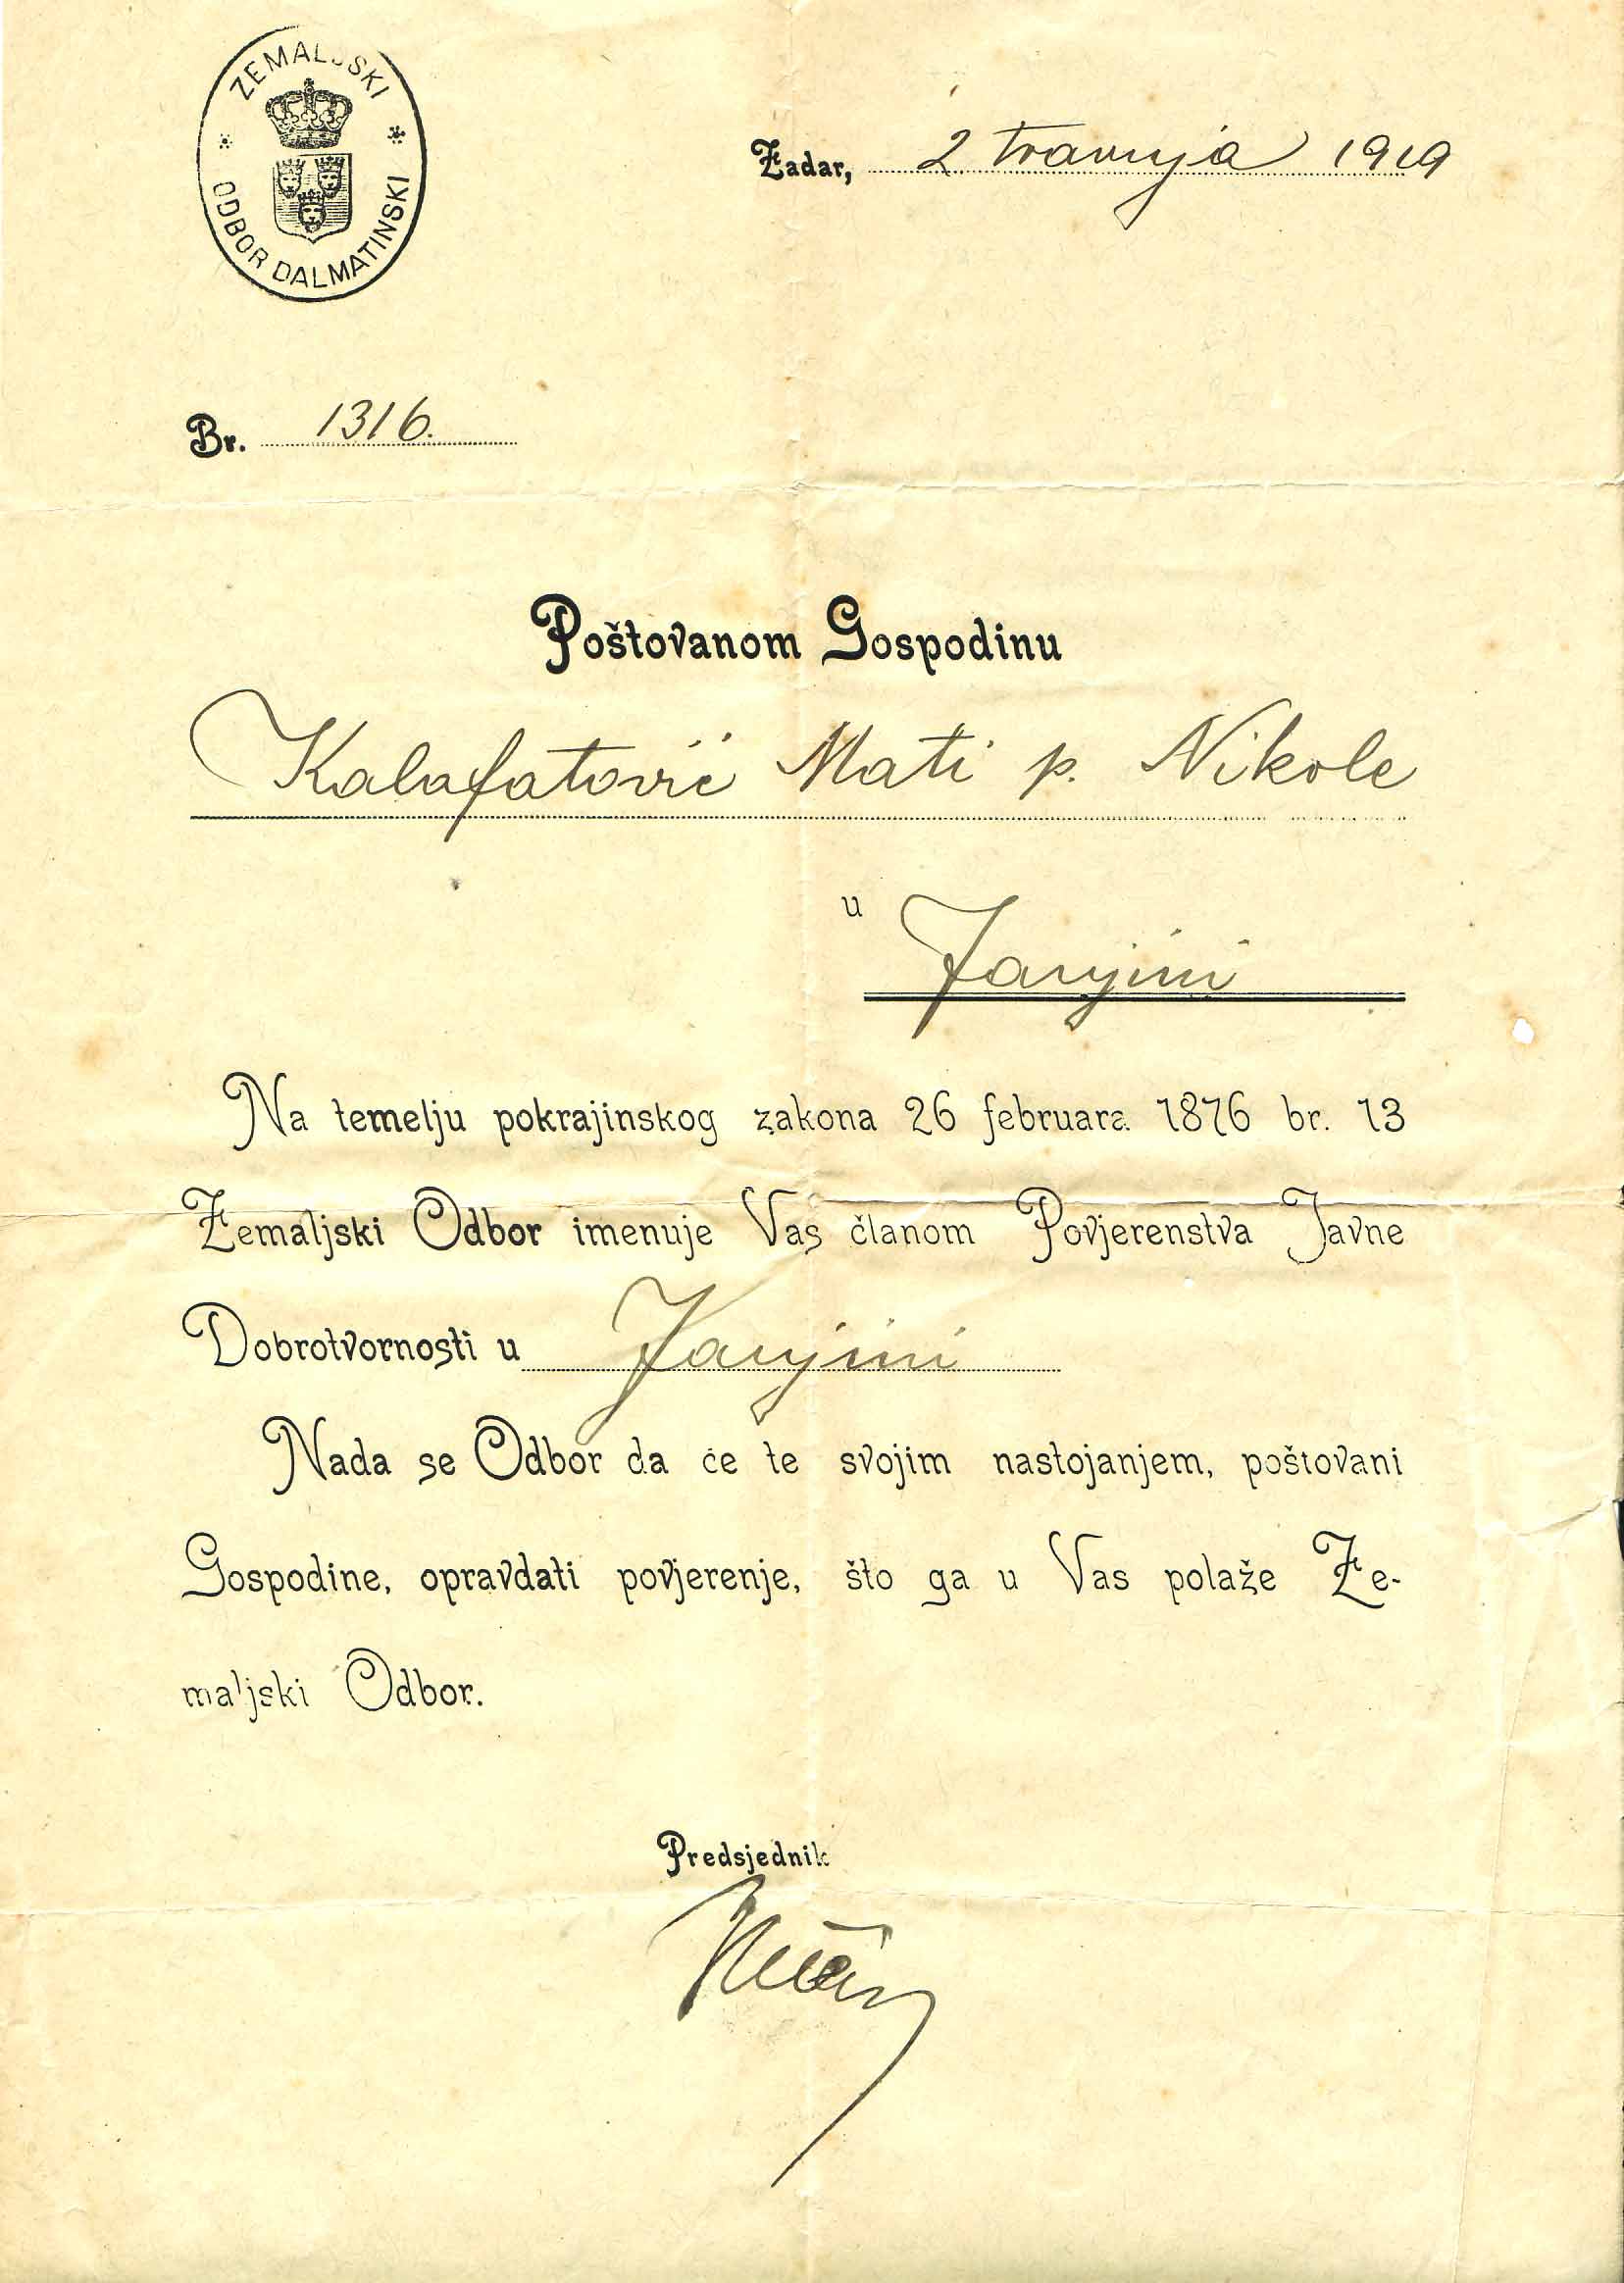 ZEMALJSKI
ODBOR DALMATINSKI
Zadar, 2 travnja 1919
Br. 1316.
Poštovanom Gospodinu
Kalafatović Mati p. Nikole
u Janjini
Na temelju pokrajinskog zakona 26 februara 1876 br. 13
Zemaljski Odbor imenuje Vas članom Povjerenstva Javne
Dobrotvornosti u Janjini
Nada se Odbor da će te svojim nastojanjem, poštovani
Gospodine, opravdati povjerenje, što ga u Vas polaže Ze-
maljski Odbor.
Predsjednik